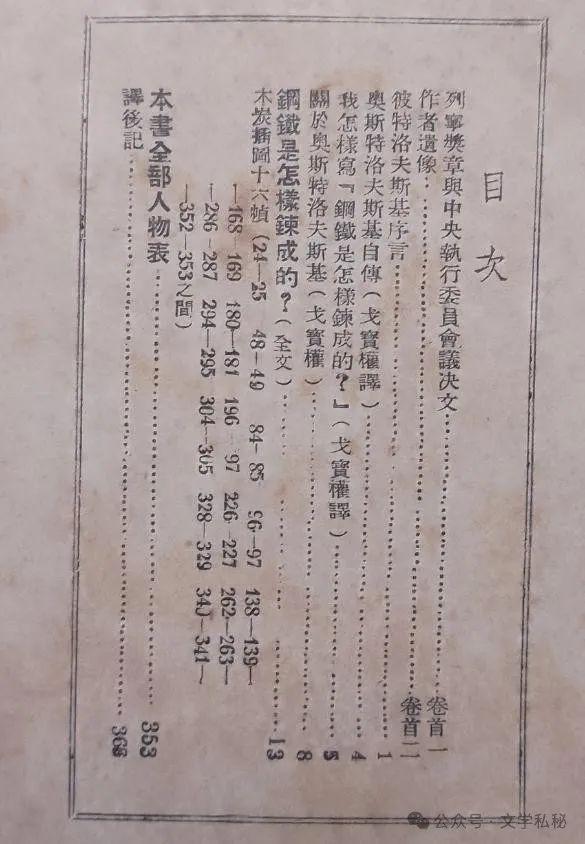 目次
列寧獎章與中央執行委員會議決文……卷首一
作者遺像……卷首二
彼特洛夫斯基序言……1
奧斯特洛夫斯基自傳（戈寶權譯）……4
我怎樣寫『鋼鐵是怎樣鍊成的？』（戈寶權譯）……5
關於奧斯特洛夫斯基（戈寶權）……8
鋼鐵是怎樣鍊成的？（全文）……13
木炭插圖十六幀（24—25 48—49 84—85 96—97 138—139—
—168—169 180—181 196—97 226—227 262—263—
—286—287 294—295 304—305 328—329 340—341—
—352—353之間）
本書全部人物表……353
譯後記……
公众号·文学私秘